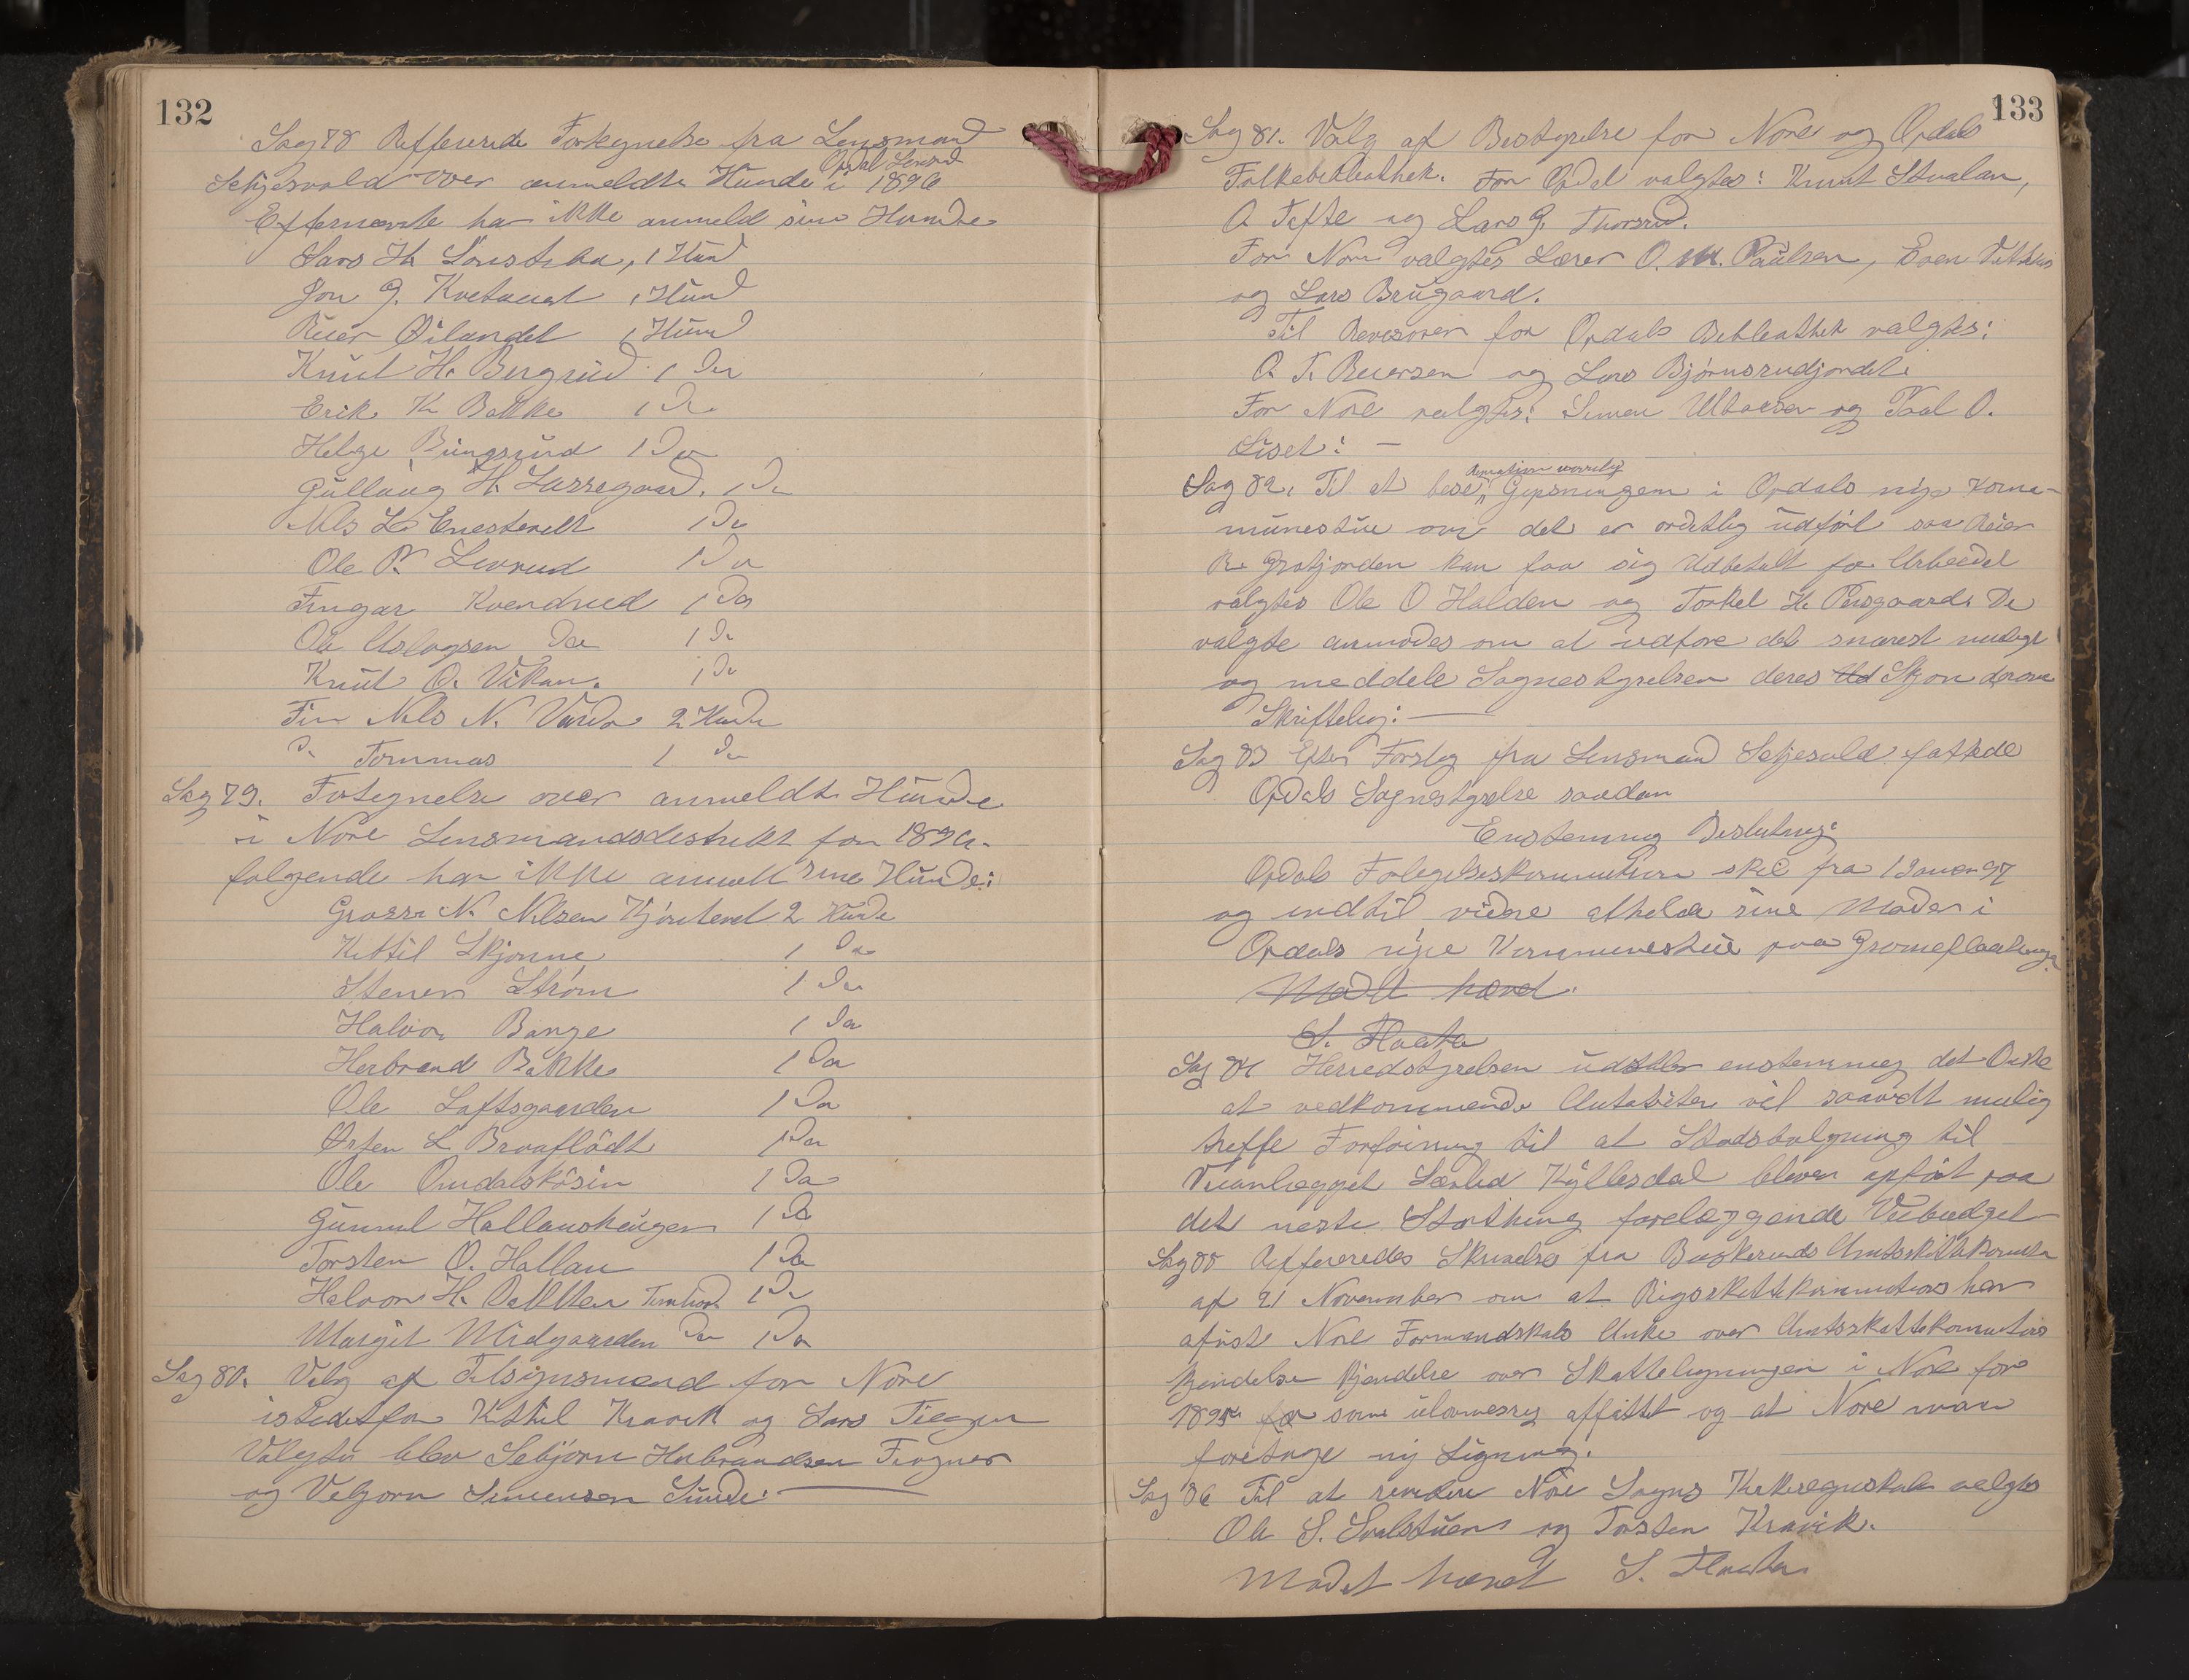 132
Sag 78 Refferede Fortegnelse fra Lensmand
Opdal Lensmd
Setjesvold over anmeldte Hunde i 1896
Efternævnte har ikke anmeld sine Hunde
Lars H. 1 Hund
Jon G. 1 Hund
Reier Øilandet 1 Hund
Knut H. Bergrud 1 Do
Erik K Bakke 1 Do
Helge Bungsrud 1 Do
Gullaug H. Lassegaard. 1 Do
Nils L. Enestvedt 1 Do
Ole P. Livrud 1 Do
Fingar Kvendrud 1 Do
Ole Aslagsen Do 1 Do
Knut O. Vikan. 1 Do
Fin Nils N. 2 Hunde
Do Tommas 1 Do
Sag 79. Fortegnelse over anmeldte Hunde
i Nore Lensmandsdestrikt for 1896.
følgende har ikke anmelt sine Hunde:
N. Nilsen 2 Hunde
Kittil Skjønne 1 Do
Stener Strøm 1 Do
Halvor Bange 1 Do
Herbrand Bakke 1 Do
Ole Loftsgaarden 1 Do
Østen L Braaflødt 1 Do
Ole 1 Do
Gunnul 1 Do
Torsten O. Hallan 1 Do
Halvor H. 1 Do
Margit Midgaarden Do 1 Do
Sag 80. Valg af Tilsynsmænd for Nore
istedetfor Kittil Kravik og Lars
Valgte blev Sebjørn Herbrandsen
og Vebjørn Simensen Sunde. —
133
Sag 81. Valg af Bestyrelse for Nore og Opdals
Folkebibliothek. For Opdal valgtes: Knut
A Tofte og Lars G. Thorsrud.
For Nore valgtes Lærer O. M. Paulsen, Even
og Lars Brugaard.
Til Revisorer for Opdals Bibleothek valgtes:
O. T. Reiersen og Lars Bjørnsrudjordet.
For Nore valgtes: Simen og Paal O.
Liset: —
Sag 82, Til at bese Gipsningen i Opdals nye Komu-
munestue om det er ordetlig udført saa Reier
R. Grøtjorden kan faa sig Udbetalt for Arbeidet
valgtes Ole O Halden og Torkel H. De
valgte anmodes om at udføre det snarest muligt
og meddele Sognestyrelsen deres Ud Skjøn derom
Skriftelig: —
Sag 83 Efter Forslag fra Lensmand Setjesvold fattede
Opdals Sognestyrelse saadan
Enstemmig Beslutning:
Opdals Forlegelseskommission skal fra 1 Januar 97
og indtil videre afholde sine Møder i
Opdals nye Kommunestue paa
Mødet hævet.
S. Flaata
Sag 84 Herredstyrelsen udtaler enstemmig det Ønske
at vedkommende Autoriteter vil saavidt mulig
treffe Forføining til at Stadsbølgning til
Veianlægget Kyllesdal bliver opført paa
det neste Storthing forelæggende Veibudget
Sag 85 Reffereredes Skrivelse fra Buskeruds Amtsskattekomite
af 21 November om at Rigsskattekommissions har
afvist Nore Formandskabs Anke over Amtsskattekomitens
Kjendelse over Skatteligningen i Nore for
1895 for som ulovmessig affattet og at Nore maa
foretage ny Ligning.
Sag 86 Til at revidere Nore Sogns Kirkeregnskab valgtes
Ole S. og Torsten Kravik.
Mødet hævet S. Flaata